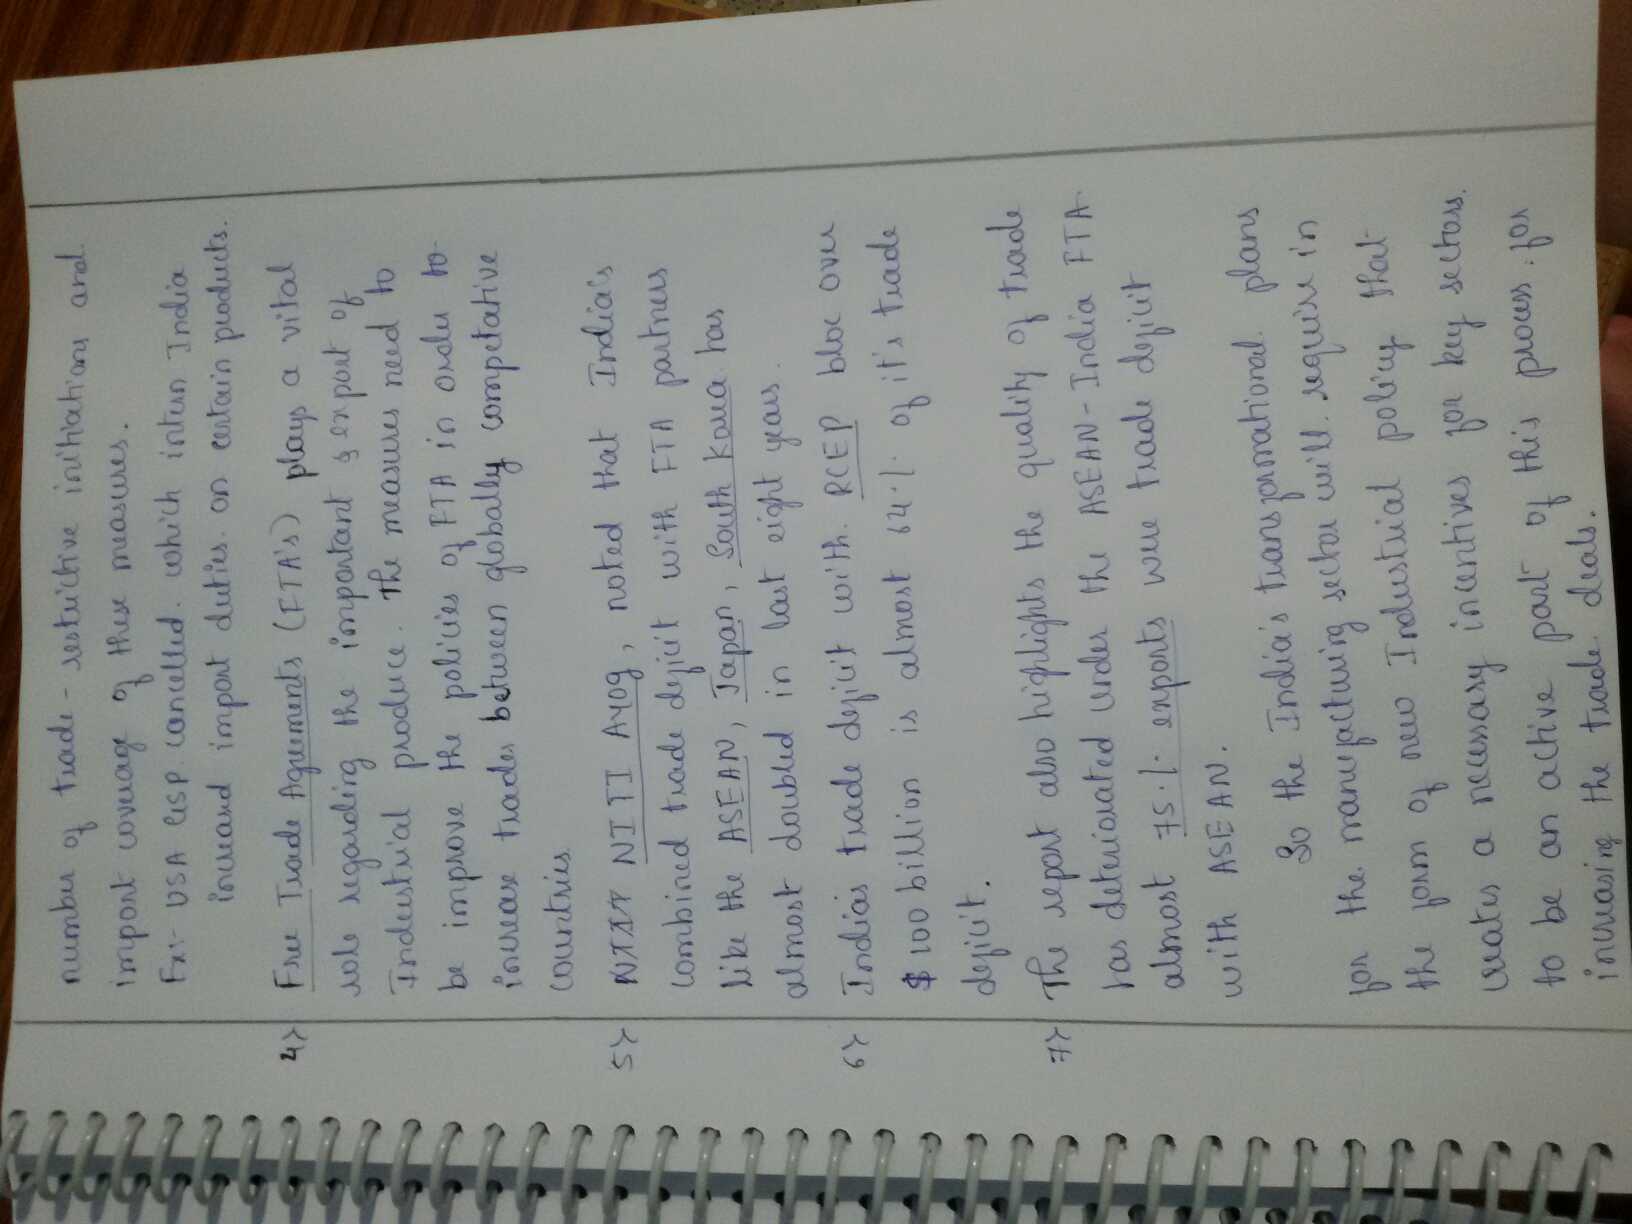 number of trade - restrictive initiations and
import coverage of these measures.
Ex:- USA GSP cancelled. which inturn India
incread import duties. on certain products.
4> Free Trade Agreements (FTA's) plays a vital
role regarding the important & export of
Industrial produce. The measures need to
be improve the policies of FTA in order to
increase trades between globally competative
countries.
5> NITI AYOG, noted that India's
combined trade deficit with FTA partners
like the ASEAN, Japan, South Korea has
almost doubled in last eight years.
6> Indias trade deficit with. RCEP bloc over
$ 100 billion is almost 64 % of it's trade
deficit.
7> The report also highlights the quality of trade
has deteriorated under the ASEAN-India FTA
almost 75 % exports were trade deficit
with ASEAN.
So the India's transformational plans
for the manufacturing sector will require in
the form of new Industrial policy that
creates a necessary incentives for key sectors.
to be an active part of this process. for
increasing the trade deals.